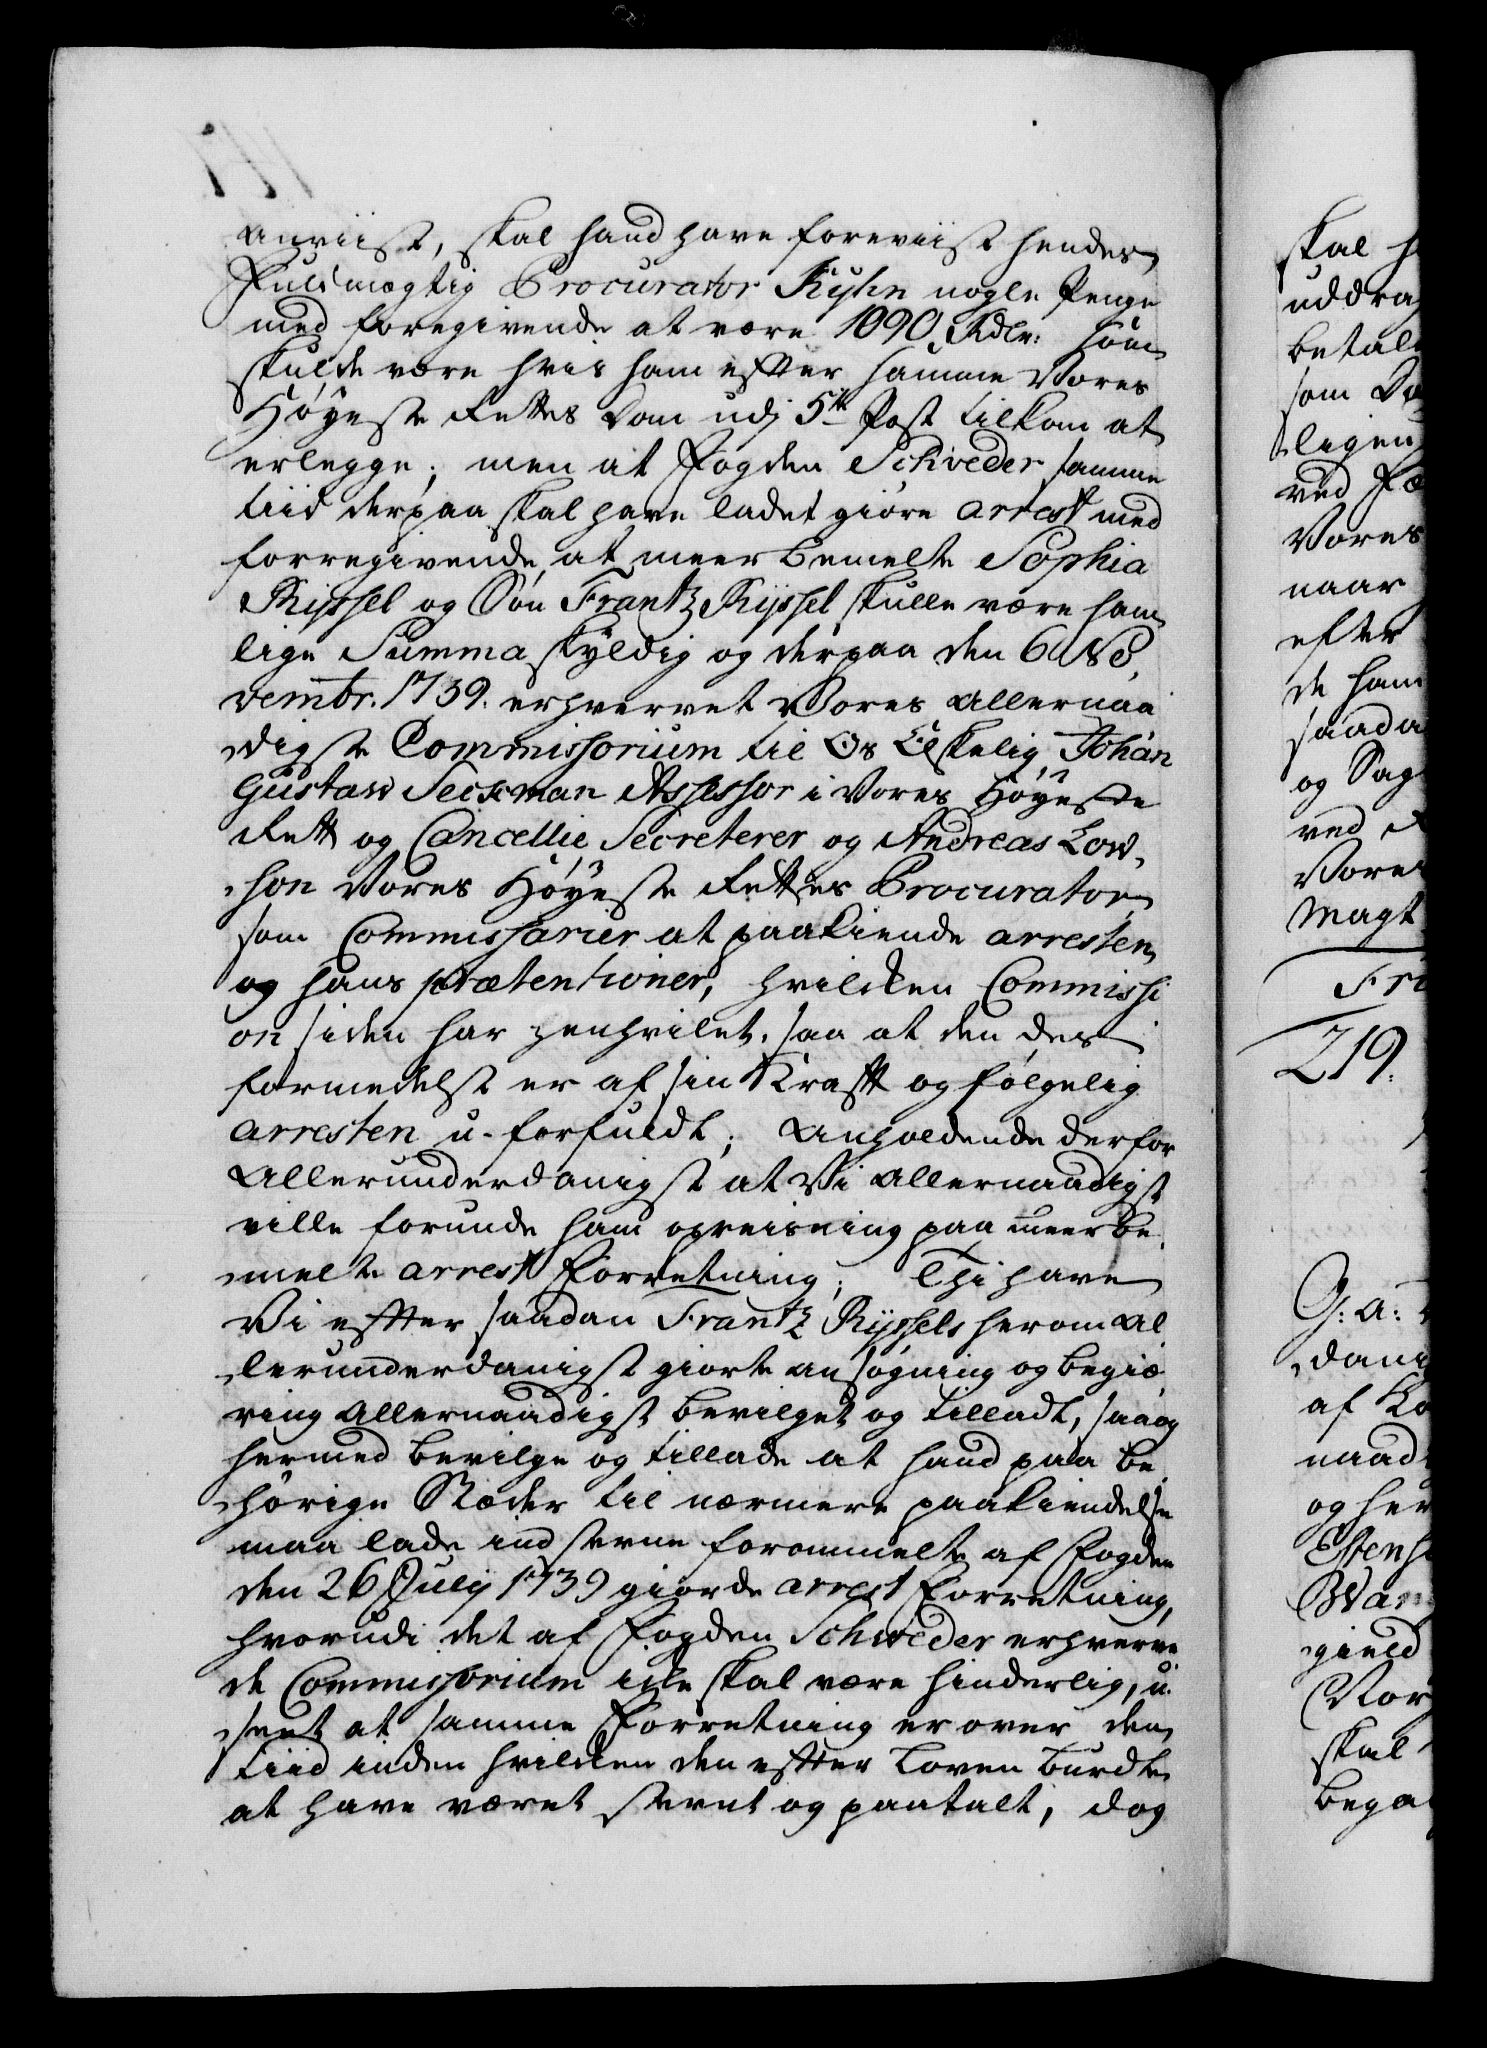 anviist, skal hand have foreviist hendes
Fuldmægtig Procurator Kyhn nogle Penge
med foregivende at være 1090 Rdlr: som
skulde være hvis ham efter samme Vores
Høyeste Rettes Dom udj 5te Post tilkom at
erlegge; men at Fogden Schveder samme
tiid derpaa skal have ladet giöre arrest med
forregivende at meerbemelte Sophia
Ryssel og Søn Frantz Ryssel skulle være ham
lige Summa skyldig og derpaa den 6 No
vembr. 1739. erhvervet Vores allernaa
digste Commissorium til Os Elskelig Johan
Gustav Seckman Assessor i Vores Høyeste
Rett og Cancellie Secreterer og Andreas Low
son Vores Høyeste Rettes Procurator
som Commissarier at paakiende arresten
og hans prætentioner, hvilcken Commissi
on siden har henhvilet, saa at den des
formedelst er af sin Krafft og følgelig
arresten u-forfuldt; Anholdende derfor
Allerunderdanigst at Vi allernaadigst
ville forunde ham opreisning paa meerbe
melte arrest Forretning; Thi have
Vi efter saadan Frantz Ryssels herom al
lerunderdanigst giorte ansøgning og begiæ
ring allernaadigst bevilget og tilladt, saa og
hermed bevilge og tillade at hand paa be
hørige Stæder til nærmere paakiendelse
maa lade indstevne forommelte af Fogden
den 26 July 1739 giorde arrest Forretning,
hvorudi det af Fogden Schweder erhverve
de Commissorium icke skal være hinderlig, u-
seet at samme Forretning er over den
Tiid inden hvilcken den efter Loven burdte
at have været stevnt og paatalt, dog
skal
uddra
betal
som Do
ligen
ved Fæ
Vores
naar
efter
de ham
saada
og Sag
ved
Vores
Magt
Fri
219.
G: a:
dani
af Ko
naad
og her
Estens
Wan
gield
Vor
skal
bega